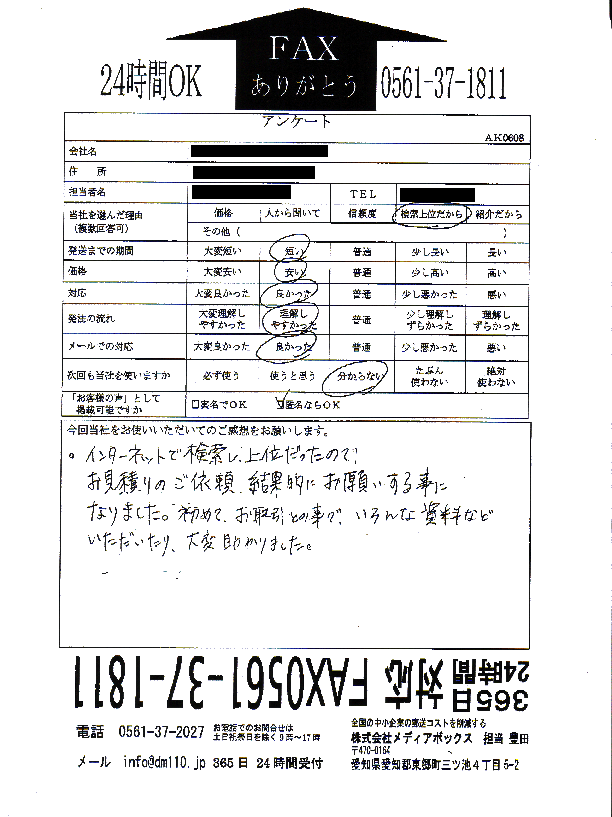 24時間OK
FAX
ありがとう
0561-37-1811
アンケート
AK0608
会社名
住 所
担当者名 TEL
当社を選んだ理由（複数回答可） 価格 人から聞いて 信頼度 検索上位だから 紹介だから
その他（ ）
発送までの期間 大変短い 短い 普通 少し長い 長い
価格 大変安い 安い 普通 少し高い 高い
対応 大変良かった 良かった 普通 少し悪かった 悪い
発注の流れ 大変理解しやすかった 理解しやすかった 普通 少し理解しずらかった 理解しずらかった
メールでの対応 大変良かった 良かった 普通 少し悪かった 悪い
次回も当社を使いますか 必ず使う 使うと思う 分からない たぶん使わない 絶対使わない
「お客様の声」として掲載可能ですか □実名でOK □匿名ならOK
今回当社をお使いいただいてのご感想をお願いします。
。インターネットで検索し、上位だったので、
お見積りのご依頼、結果的にお願いする事に
なりました。初めて、お取引との事で、いろんな資料など
いただいたり、大変助かりました。
365日24時間対応 FAX0561-37-1811
電話 0561-37-2027 お電話でのお問合せは
土日祝祭日を除く9時～17時
メール info@dm110.jp 365日24時間受付
全国の中小企業の郵送コストを削減する
株式会社メディアボックス 担当 豊田
〒470-0164
愛知県愛知郡東郷町三ツ池4丁目5-2